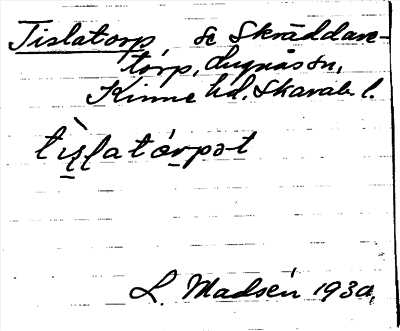 Tislatorp se Skräddare-
torp, Lugnås sn,
Kinne hd. Skarab. l.
tìsḷatórpət
L. Madsén 1930.